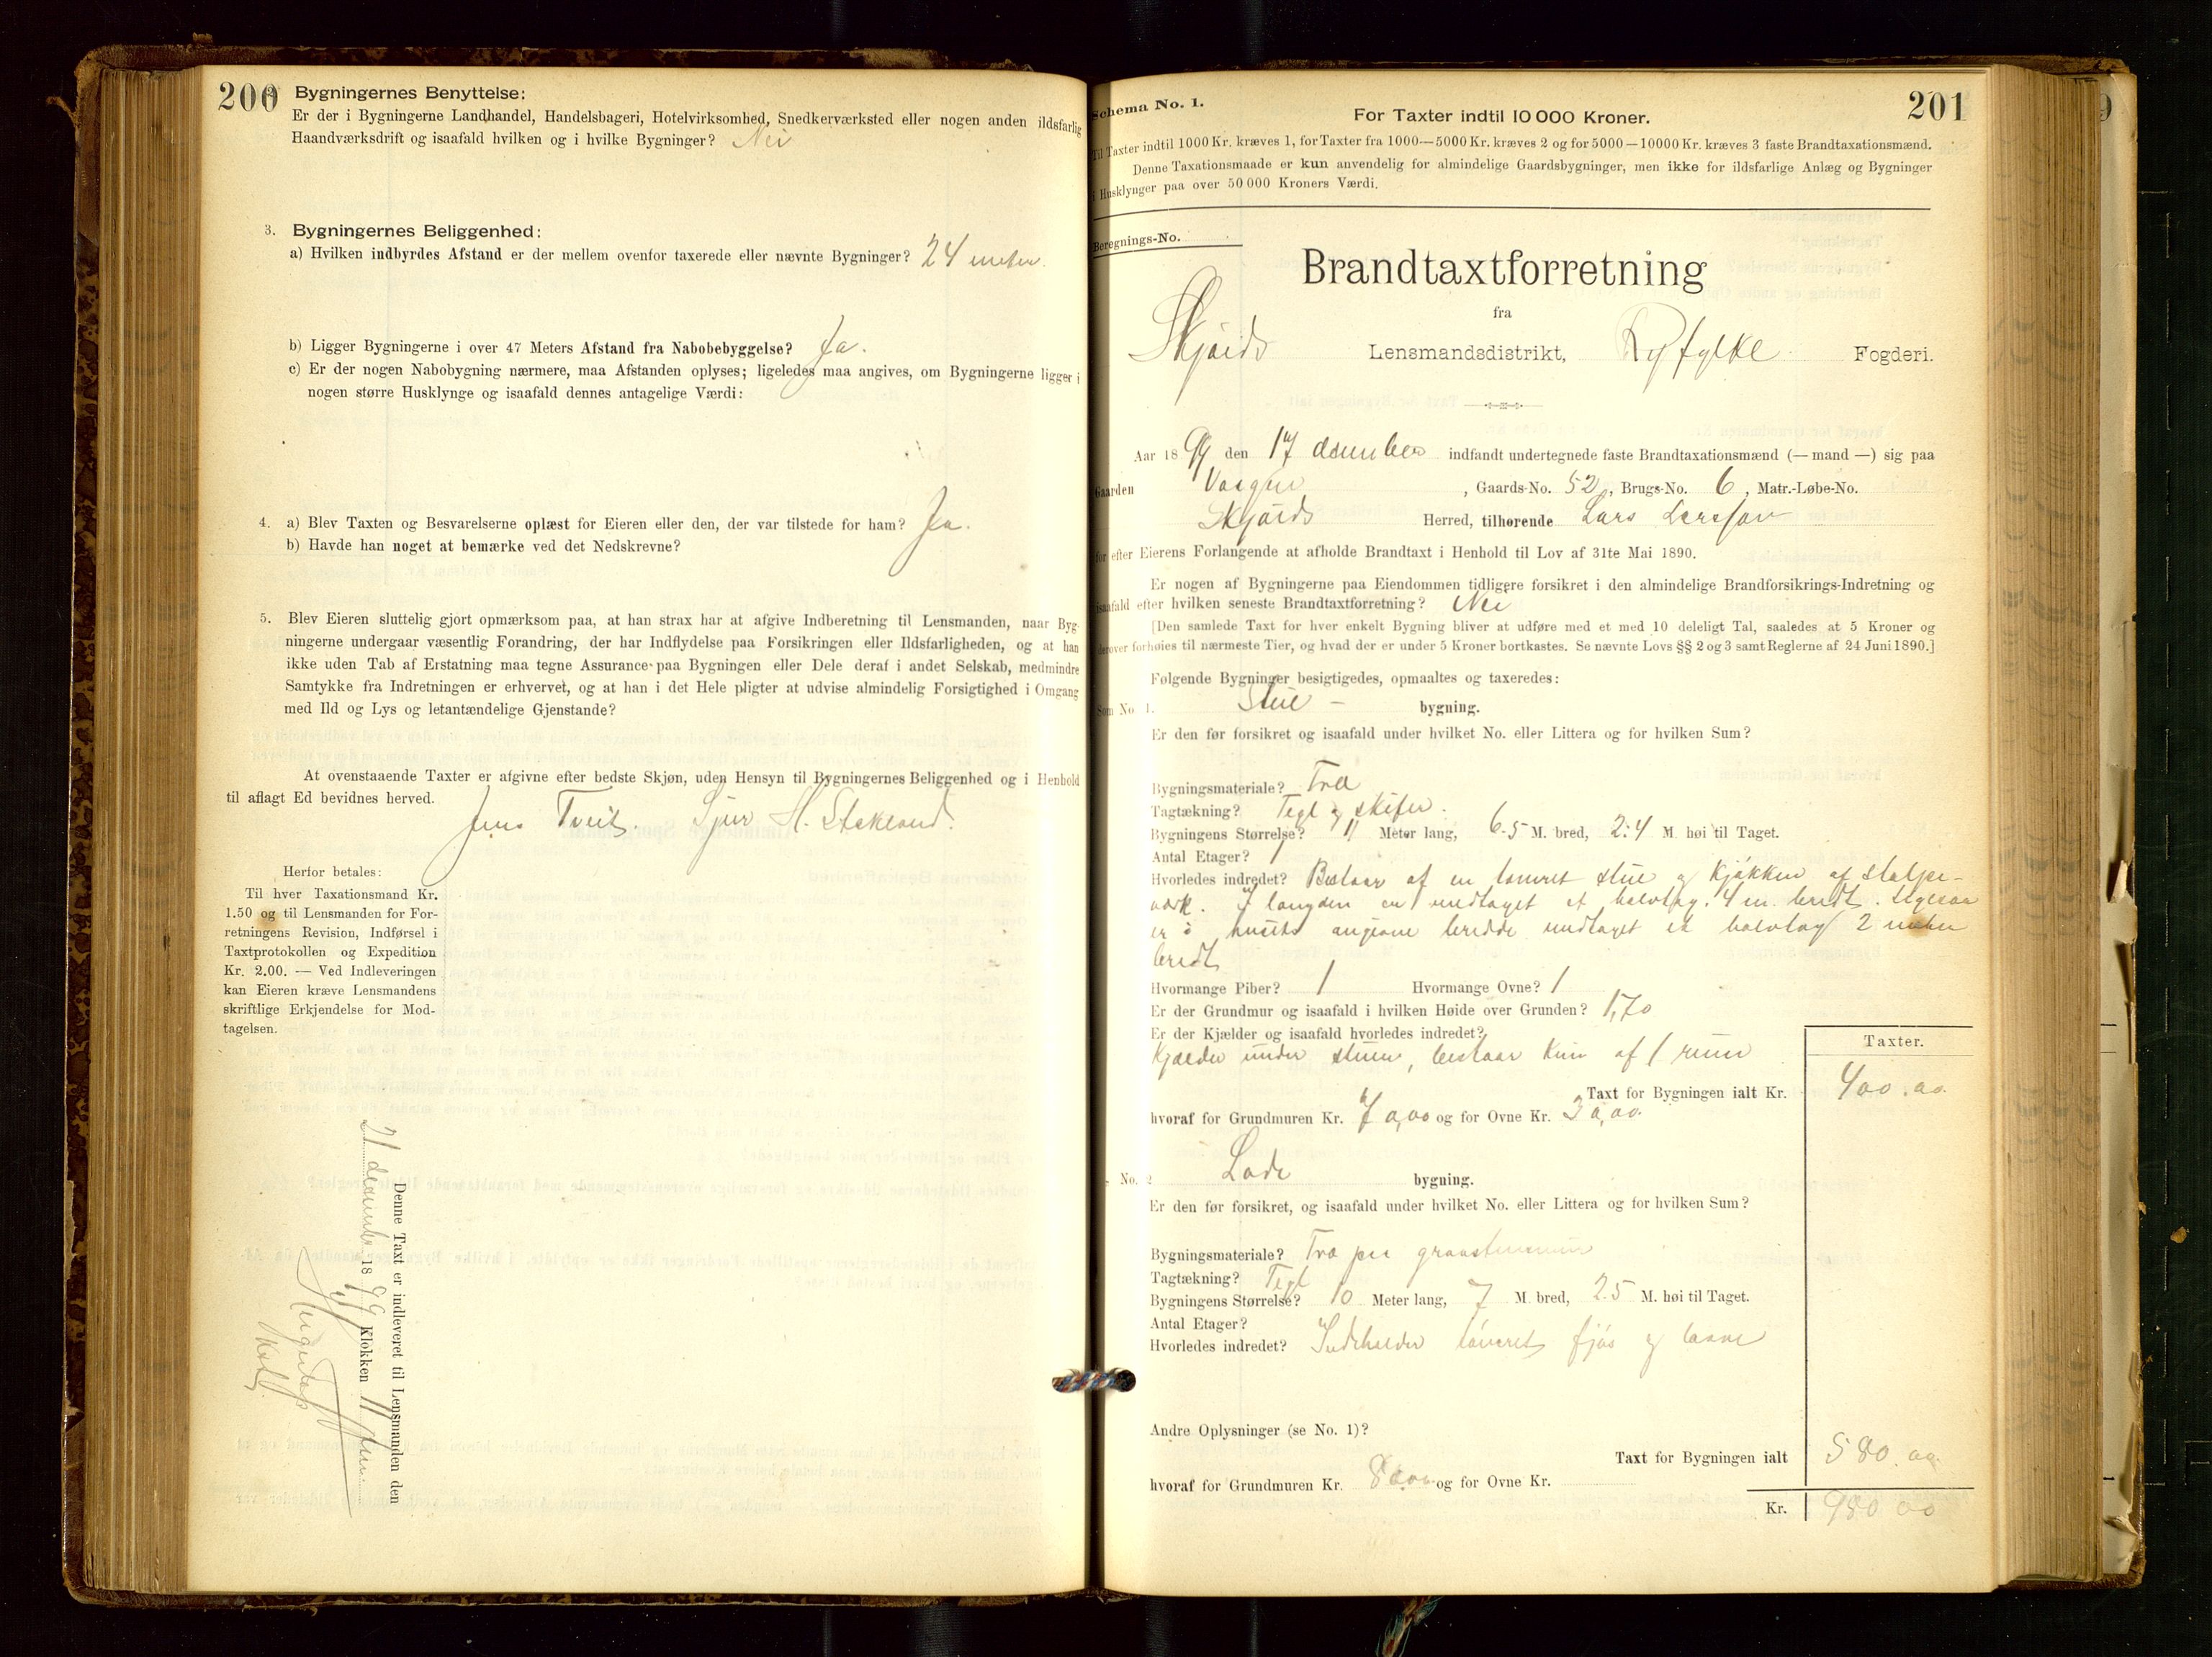 200
Bygningernes Benyttelse:
Er der i Bygningerne Landhandel, Handelsbageri, Hotelvirksomhed, Snedkerværksted eller nogen anden ildsfarlig
Haandværksdrift og isaafald hvilken og i hvilke Bygninger? Nei
3. Bygningernes Beliggenhed:
a) Hvilken indbyrdes Afstand er der mellem ovenfor taxerede eller nævnte Bygninger? 24 meter.
b) Ligger Bygningerne i over 47 Meters Afstand fra Nabobebyggelse? Ja.
c) Er der nogen Nabobygning nærmere, maa Afstanden oplyses; ligeledes maa angives, om Bygningerne ligger i
nogen større Husklynge og isaafald dennes antagelige Værdi:
4. a) Blev Taxten og Besvarelserne oplæst for Eieren eller den, der var tilstede for ham? Ja.
b) Havde han noget at bemærke ved det Nedskrevne?
5. Blev Eieren sluttelig gjort opmærksom paa, at han strax har at afgive Indberetning til Lensmanden, naar Byg-
ningerne undergaar væsentlig Forandring, der har Indflydelse paa Forsikringen eller Ildsfarligheden, og at han
ikke uden Tab af Erstatning maa tegne Assurance paa Bygningen eller Dele deraf i andet Selskab, medmindre
Samtykke fra Indretningen er erhvervet, og at han i det Hele pligter at udvise almindelig Forsigtighed i Omgang
med Ild og Lys og letantændelige Gjenstande?
At ovenstaaende Taxter er afgivne efter bedste Skjøn, uden Hensyn til Bygningernes Beliggenhed og i Henhold
til aflagt Ed bevidnes herved.
Jens Tveit. Sjur H. Stakland.
Herfor betales:
Til hver Taxationsmand Kr.
1.50 og til Lensmanden for For-
retningens Revision, Indførsel i
Taxtprotokollen og Expedition
Kr. 2.00. — Ved Indleveringen
kan Eieren kræve Lensmandens
skriftlige Erkjendelse for Mod-
tagelsen.
Denne Taxt er indleveret til Lensmanden den
21 december 1899 Klokken 11
201
Schema No. 1.
For Taxter indtil 10 000 Kroner.
Til Taxter indtil 1000 Kr. kræves 1, for Taxter fra 1000—5000 Kr. kræves 2 og for 5000—10000 Kr. kræves 3 faste Brandtaxationsmænd.
Denne Taxationsmaade er kun anvendelig for almindelige Gaardsbygninger, men ikke for ildsfarlige Anlæg og Bygninger
i Husklynger paa over 50 000 Kroners Værdi.
Beregnings-No.
Brandtaxtforretning
fra
Skjolds Lensmandsdistrikt, Ryfylke Fogderi.
Aar 1899 den 17 december indfandt undertegnede faste Brandtaxationsmænd (— mand —) sig paa
Gaarden , Gaards-No. 52, Brugs-No. 6, Matr.-Løbe-No.
Skjolds Herred, tilhørende Lars Larsson
for efter Eierens Forlangende at afholde Brandtaxt i Henhold til Lov af 31te Mai 1890.
Er nogen af Bygningerne paa Eiendommen tidligere forsikret i den almindelige Brandforsikrings-Indretning og
isaafald efter hvilken seneste Brandtaxtforretning? Nei
[Den samlede Taxt for hver enkelt Bygning bliver at udføre med et med 10 deleligt Tal, saaledes at 5 Kroner og
derover forhøies til nærmeste Tier, og hvad der er under 5 Kroner bortkastes. Se nævnte Lovs §§ 2 og 3 samt Reglerne af 24 Juni 1890.]
Følgende Bygninger besigtigedes, opmaaltes og taxeredes:
Som No 1. Stue - bygning.
Er den før forsikret og isaafald under hvilket No. eller Littera og for hvilken Sum?
Bygningsmateriale? Træ
Tagtækning? Tegl og skifer.
Bygningens Størrelse? 11 Meter lang, 6.5 M. bred, 2.4 M. høi til Taget.
Antal Etager? 1
Hvorledes indredet? Bestaar af en tømret stue og kjøkken af stolpe-
værk. I længden er medtaget et halvtag 4 m. bredt. Ligesaa
er i husets angivne bredde medtaget et halvtag 2 meter
bredt
Hvormange Piber? 1 Hvormange Ovne? 1
Er der Grundmur og isaafald i hvilken Høide over Grunden? 1,70
Er der Kjælder og isaafald hvorledes indredet?
Kjælder under stuen, bestaar kun af 1 rum
Taxter.
Taxt for Bygningen ialt Kr. 400.00
hvoraf for Grundmuren Kr. 70,00 og for Ovne Kr. 30,00
No. 2 Lade bygning.
Er den før forsikret, og isaafald under hvilket No. eller Littera og for hvilken Sum?
Bygningsmateriale? Træ paa graastensmur
Tagtækning? Tegl
Bygningens Størrelse? 10 Meter lang, 7 M. bred, 2.5 M. høi til Taget.
Antal Etager?
Hvorledes indredet? Indeholder tømret fjøs og laave
Andre Oplysninger (se No. 1)?
Taxt for Bygningen ialt 580.00
hvoraf for Grundmuren Kr. 80.00 og for Ovne Kr.
Kr. 980 00